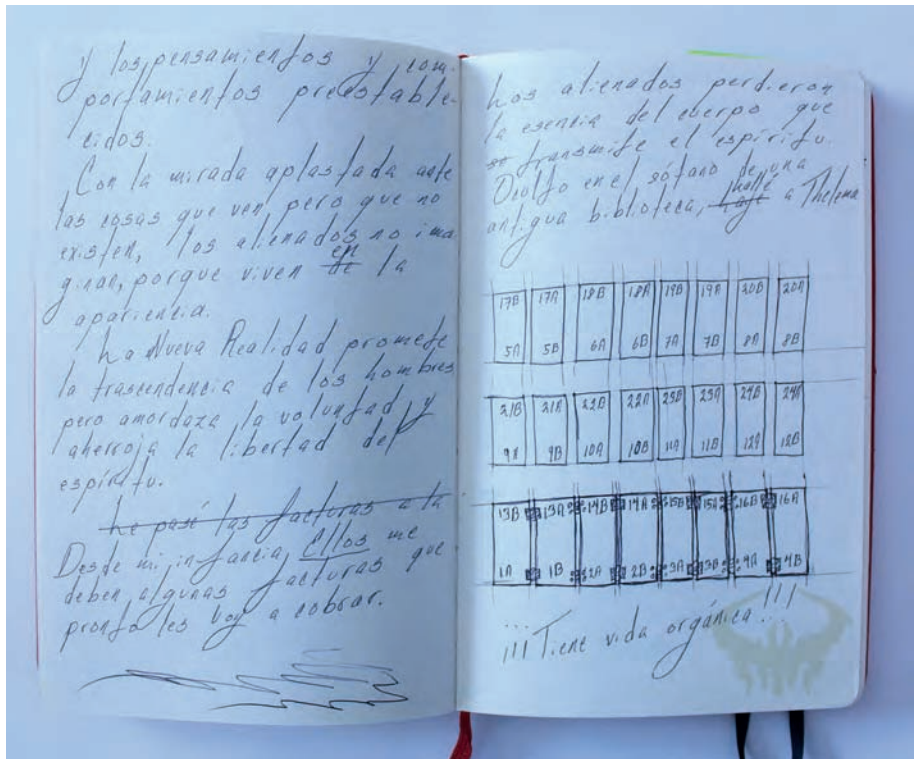 y los pensamientos y com-
portamientos preestable-
cidos.
Con la mirada aplastada ante
las cosas que ven pero que no
existen, los alienados no ima
ginan, porque viven en de la
apariencia.
La Nueva Realidad promete
la trascendencia de los hombres
pero amordaza la voluntad y
aherroja la libertad del
espíritu.
Le pasé las facturas a la
Desde mi infancia, Ellos me
deben algunas facturas que
pronto les voy a cobrar.
Los alienados perdieron
la esencia del cuerpo que
se transmite el espíritu.
Oculto en el sótano de una
antigua biblioteca, hallé a Thelema
17B 17A 18B 18A 19B 19A 20B 20A
5A 5B 6A 6B 7A 7B 8A 8B
21B 21A 22B 22A 23B 23A 24B 24A
9A 9B 10A 10B 11A 11B 12A 12B
13B 13A 14B 14A 15B 15A 16B 16A
1A 1B 2A 2B 3A 3B 4A 4B
¡¡¡Tiene vida orgánica!!!